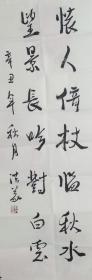 懷人倚杖臨秋水
望景長吟對白雲
辛丑年秋月